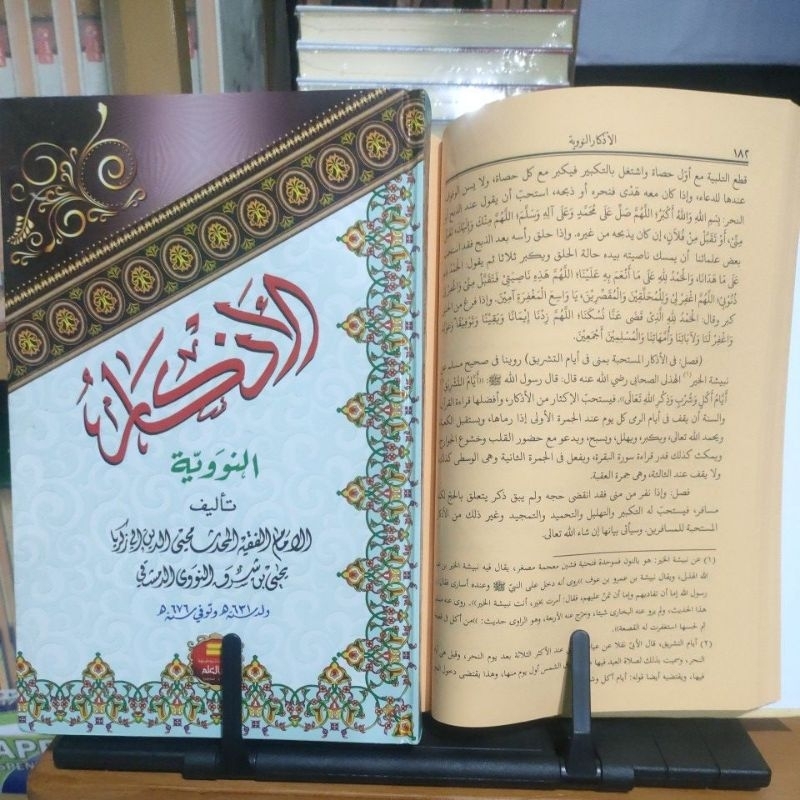 الأذكار
النووية
تأليف
الإمام الفقيه المحدث محيى الدين أبي زكريا
يحيى بن شرف النووي الدمشقي
ولد سنة ٦٣١هـ وتوفي سنة ٦٧٦هـ
الأذكار النووية
١٨٢
قطع التلبية مع أول حصاة واشتغل بالتكبير فيكبر مع كل حصاة، ولا يسن الوقوف
عندها للدعاء، وإذا كان معه هَدْى فنحره أو ذبحه، استحبّ أن يقول عند الذبح
النحر: بِسْمِ اللَّهِ وَاللَّهُ أَكْبَرُ؛ اللَّهُمَّ صَلِّ عَلَى مُحَمَّدٍ وَعَلَى آلِهِ وَسَلِّمْ، اللَّهُمَّ مِنْكَ وَإِلَيْكَ
مِنِّي، أَوْ تَقَبَّلْ مِنْ فُلَانٍ، إن كان يذبحه من غيره. وإذا حلق رأسه بعد الذبح فقد استحب
بعض علمائنا أن يمسك ناصيته بيده حالة الحلق ويكبر ثلاثا ثم يقول: الْحَمْدُ
عَلَى مَا هَدَانَا، وَالْحَمْدُ لِلَّهِ عَلَى مَا أَنْعَمَ بِهِ عَلَيْنَا؛ اللَّهُمَّ هَذِهِ نَاصِيَتِي فَتَقَبَّلْ مِنِّي وَاغْفِرْ
ذُنُوبِي، اللَّهُمَّ اغْفِرْ لِي وَلِلْمُحَلِّقِينَ وَالْمُقَصِّرِينَ، يَا وَاسِعَ الْمَغْفِرَةِ آمِينَ. وإذا فرغ من
كبر وقال: الْحَمْدُ لِلَّهِ الَّذِي قَضَى عَنَّا نُسُكَنَا، اللَّهُمَّ زِدْنَا إِيمَانًا وَيَقِينًا وَتَوْفِيقًا
وَاغْفِرْ لَنَا وَلِآبَائِنَا وَأُمَّهَاتِنَا وَالْمُسْلِمِينَ أَجْمَعِينَ.
(فصل: في الأذكار المستحبة بمنى في أيام التشريق) روينا في صحيح مسلم عن
نبيشة الخير (١) الهذلى الصحابى رضى الله عنه قال: قال رسول الله ﷺ: «أَيَّامُ التَّشْرِيقِ (٢)
أَيَّامُ أَكْلٍ وَشُرْبٍ وَذِكْرِ اللَّهِ تَعَالَى». فيستحبّ الإكثار من الأذكار، وأفضلها قراءة القرآن
والسنة أن يقف فى أيام الرمى كل يوم عند الجمرة الأولى إذا رماها، ويستقبل
ويحمد الله تعالى، ويكبر، ويهلل، ويسبح، ويدعو مع حضور القلب وخشوع الجوارح
ويمكث كذلك قدر قراءة سورة البقرة، ويفعل فى الجمرة الثانية وهى الوسطى
ولا يقف عند الثالثة، وهى جمرة العقبة.
فصل: وإذا نفر من منى فقد انقضى حجه ولم يبق ذكر يتعلق بالحج
مسافر، فيستحب له التكبير والتهليل والتحميد والتمجيد وغير ذلك من
المستحبة للمسافرين. وسيأتى بيانها إن شاء الله تعالى.
(١) عن نبيشة الخير: هو بالنون فموحدة فتحتية فشين معجمة مصغر، يقال فيه نبيشة الخير بن
الله الهذلى، ويقال نبيشة بن عمرو بن عوف «روى أنه دخل على النبىّ ﷺ وعنده أسارى
رسول الله إما أن تفاديهم وإما أن تمنّ عليهم، فقال: أمرت بخير، أنت نبيشة الخير».
هذا الحديث، ولم يرو عنه البخارى شيئا، وخرّج عنه الأربعة، وهو الراوى حديث: «من أكل في
ثم لحسها استغفرت له القصعة».
(٢) أيام التشريق، قال